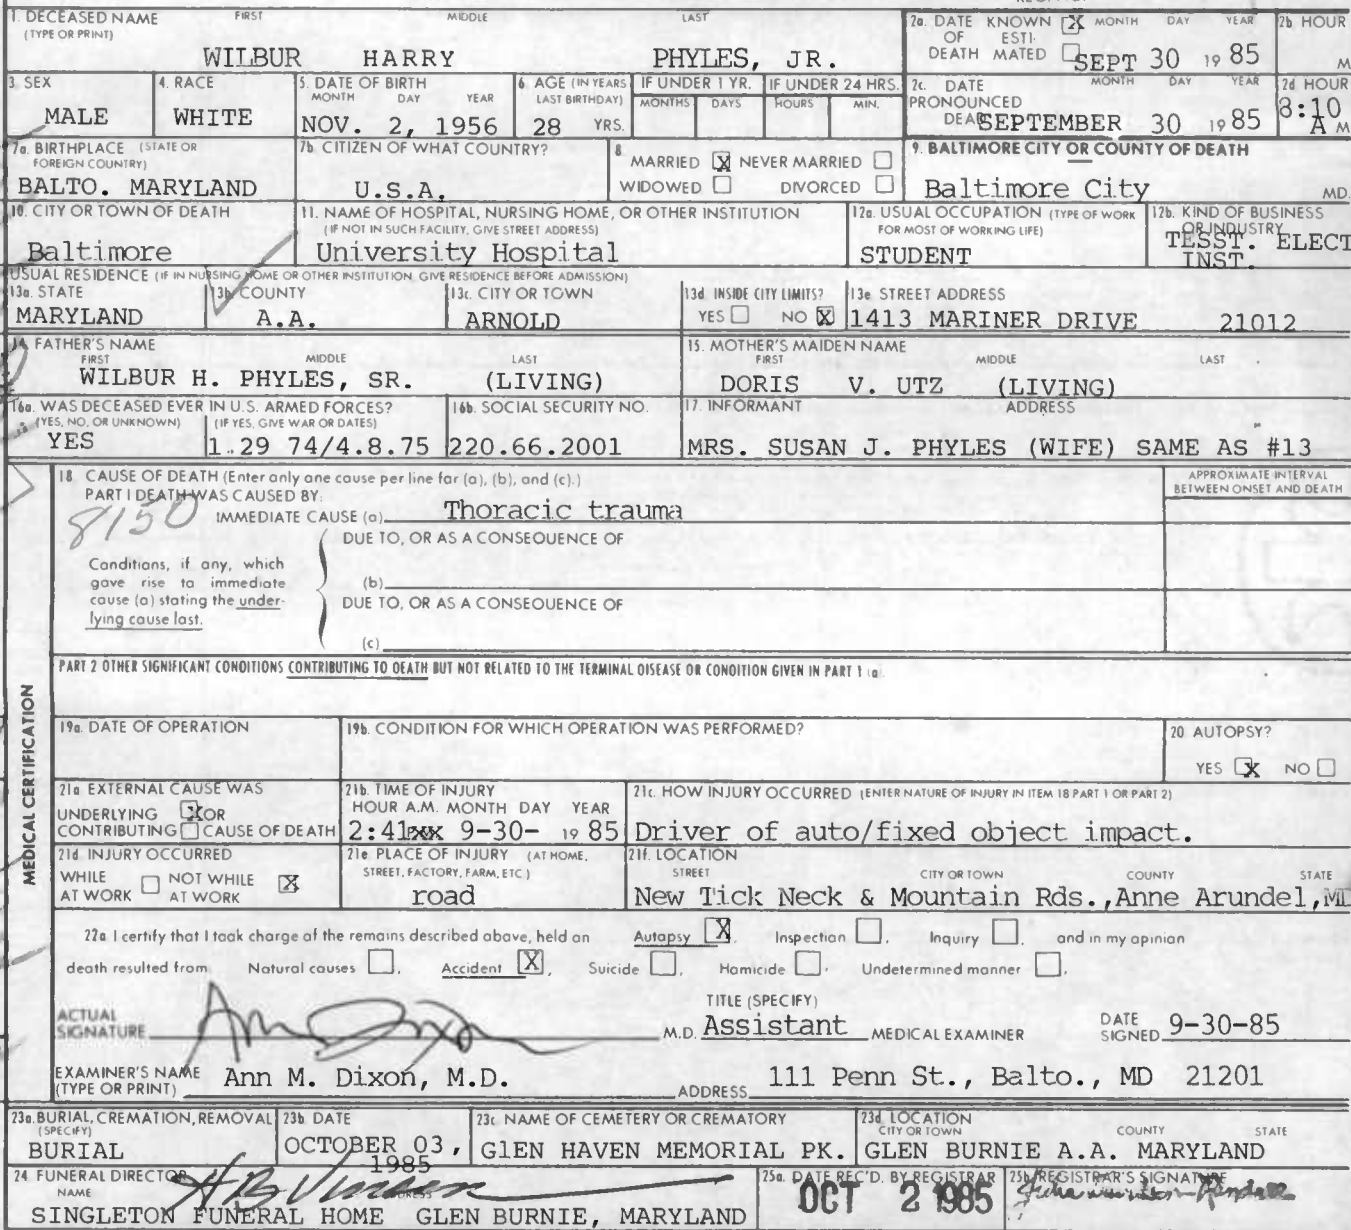 1. DECEASED NAME FIRST MIDDLE LAST
(TYPE OR PRINT)
WILBUR HARRY PHYLES, JR.
2a. DATE OF DEATH KNOWN X ESTIMATED MONTH DAY YEAR
SEPT 30 1985
2b HOUR
M
3. SEX
MALE
4. RACE
WHITE
5. DATE OF BIRTH
MONTH DAY YEAR
NOV. 2, 1956
6. AGE (IN YEARS LAST BIRTHDAY)
28 YRS.
IF UNDER 1 YR.
MONTHS DAYS
IF UNDER 24 HRS.
HOURS MIN.
2c. DATE PRONOUNCED DEAD MONTH DAY YEAR
SEPTEMBER 30 1985
2d HOUR
8:10
A M
7a. BIRTHPLACE (STATE OR FOREIGN COUNTRY)
BALTO. MARYLAND
7b. CITIZEN OF WHAT COUNTRY?
U.S.A.
8
MARRIED X NEVER MARRIED
WIDOWED DIVORCED
9. BALTIMORE CITY OR COUNTY OF DEATH
Baltimore City MD.
10. CITY OR TOWN OF DEATH
Baltimore
11. NAME OF HOSPITAL, NURSING HOME, OR OTHER INSTITUTION
(IF NOT IN SUCH FACILITY, GIVE STREET ADDRESS)
University Hospital
12a. USUAL OCCUPATION (TYPE OF WORK FOR MOST OF WORKING LIFE)
STUDENT
12b. KIND OF BUSINESS OR INDUSTRY
TESST. ELECT
INST.
USUAL RESIDENCE (IF IN NURSING HOME OR OTHER INSTITUTION GIVE RESIDENCE BEFORE ADMISSION)
13a. STATE
MARYLAND
13b COUNTY
A.A.
13c. CITY OR TOWN
ARNOLD
13d INSIDE CITY LIMITS?
YES NO X
13e STREET ADDRESS
1413 MARINER DRIVE 21012
14. FATHER'S NAME
FIRST MIDDLE LAST
WILBUR H. PHYLES, SR. (LIVING)
15. MOTHER'S MAIDEN NAME
FIRST MIDDLE LAST
DORIS V. UTZ (LIVING)
16a. WAS DECEASED EVER IN U.S. ARMED FORCES?
(YES, NO, OR UNKNOWN) (IF YES, GIVE WAR OR DATES)
YES 1.29 74/4.8.75
16b. SOCIAL SECURITY NO.
220.66.2001
17. INFORMANT ADDRESS
MRS. SUSAN J. PHYLES (WIFE) SAME AS #13
MEDICAL CERTIFICATION
18 CAUSE OF DEATH (Enter only one cause per line for (a), (b), and (c).)
APPROXIMATE INTERVAL
BETWEEN ONSET AND DEATH
PART I DEATH WAS CAUSED BY:
8150
IMMEDIATE CAUSE (a) Thoracic trauma
DUE TO, OR AS A CONSEQUENCE OF
Conditions, if any, which
gave rise to immediate
cause (a) stating the under-
lying cause last.
(b)
DUE TO, OR AS A CONSEQUENCE OF
(c)
PART 2 OTHER SIGNIFICANT CONDITIONS CONTRIBUTING TO DEATH BUT NOT RELATED TO THE TERMINAL DISEASE OR CONDITION GIVEN IN PART 1 (a)
19a. DATE OF OPERATION
19b. CONDITION FOR WHICH OPERATION WAS PERFORMED?
20 AUTOPSY?
YES X NO
21a EXTERNAL CAUSE WAS
UNDERLYING X OR
CONTRIBUTING CAUSE OF DEATH
21b. TIME OF INJURY
HOUR A.M. MONTH DAY YEAR
2:41 xx 9-30- 1985
21c. HOW INJURY OCCURRED (ENTER NATURE OF INJURY IN ITEM 18 PART 1 OR PART 2)
Driver of auto/fixed object impact.
21d INJURY OCCURRED
WHILE AT WORK NOT WHILE AT WORK X
21e PLACE OF INJURY (AT HOME, STREET, FACTORY, FARM, ETC.)
road
21f. LOCATION
STREET CITY OR TOWN COUNTY STATE
New Tick Neck & Mountain Rds., Anne Arundel, MD
22a I certify that I took charge of the remains described above, held an Autopsy X, Inspection , Inquiry , and in my opinion
death resulted from Natural causes , Accident X, Suicide , Homicide , Undetermined manner .
ACTUAL SIGNATURE Ann Dixon M.D.
TITLE (SPECIFY)
Assistant MEDICAL EXAMINER
DATE SIGNED 9-30-85
EXAMINER'S NAME (TYPE OR PRINT) Ann M. Dixon, M.D.
ADDRESS 111 Penn St., Balto., MD 21201
23a. BURIAL, CREMATION, REMOVAL (SPECIFY)
BURIAL
23b DATE
OCTOBER 03, 1985
23c NAME OF CEMETERY OR CREMATORY
GlEN HAVEN MEMORIAL PK.
23d LOCATION
CITY OR TOWN COUNTY STATE
GLEN BURNIE A.A. MARYLAND
24 FUNERAL DIRECTOR
NAME ADDRESS
SINGLETON FUNERAL HOME GLEN BURNIE, MARYLAND
25a. DATE REC'D. BY REGISTRAR
OCT 2 1985
25b REGISTRAR'S SIGNATURE